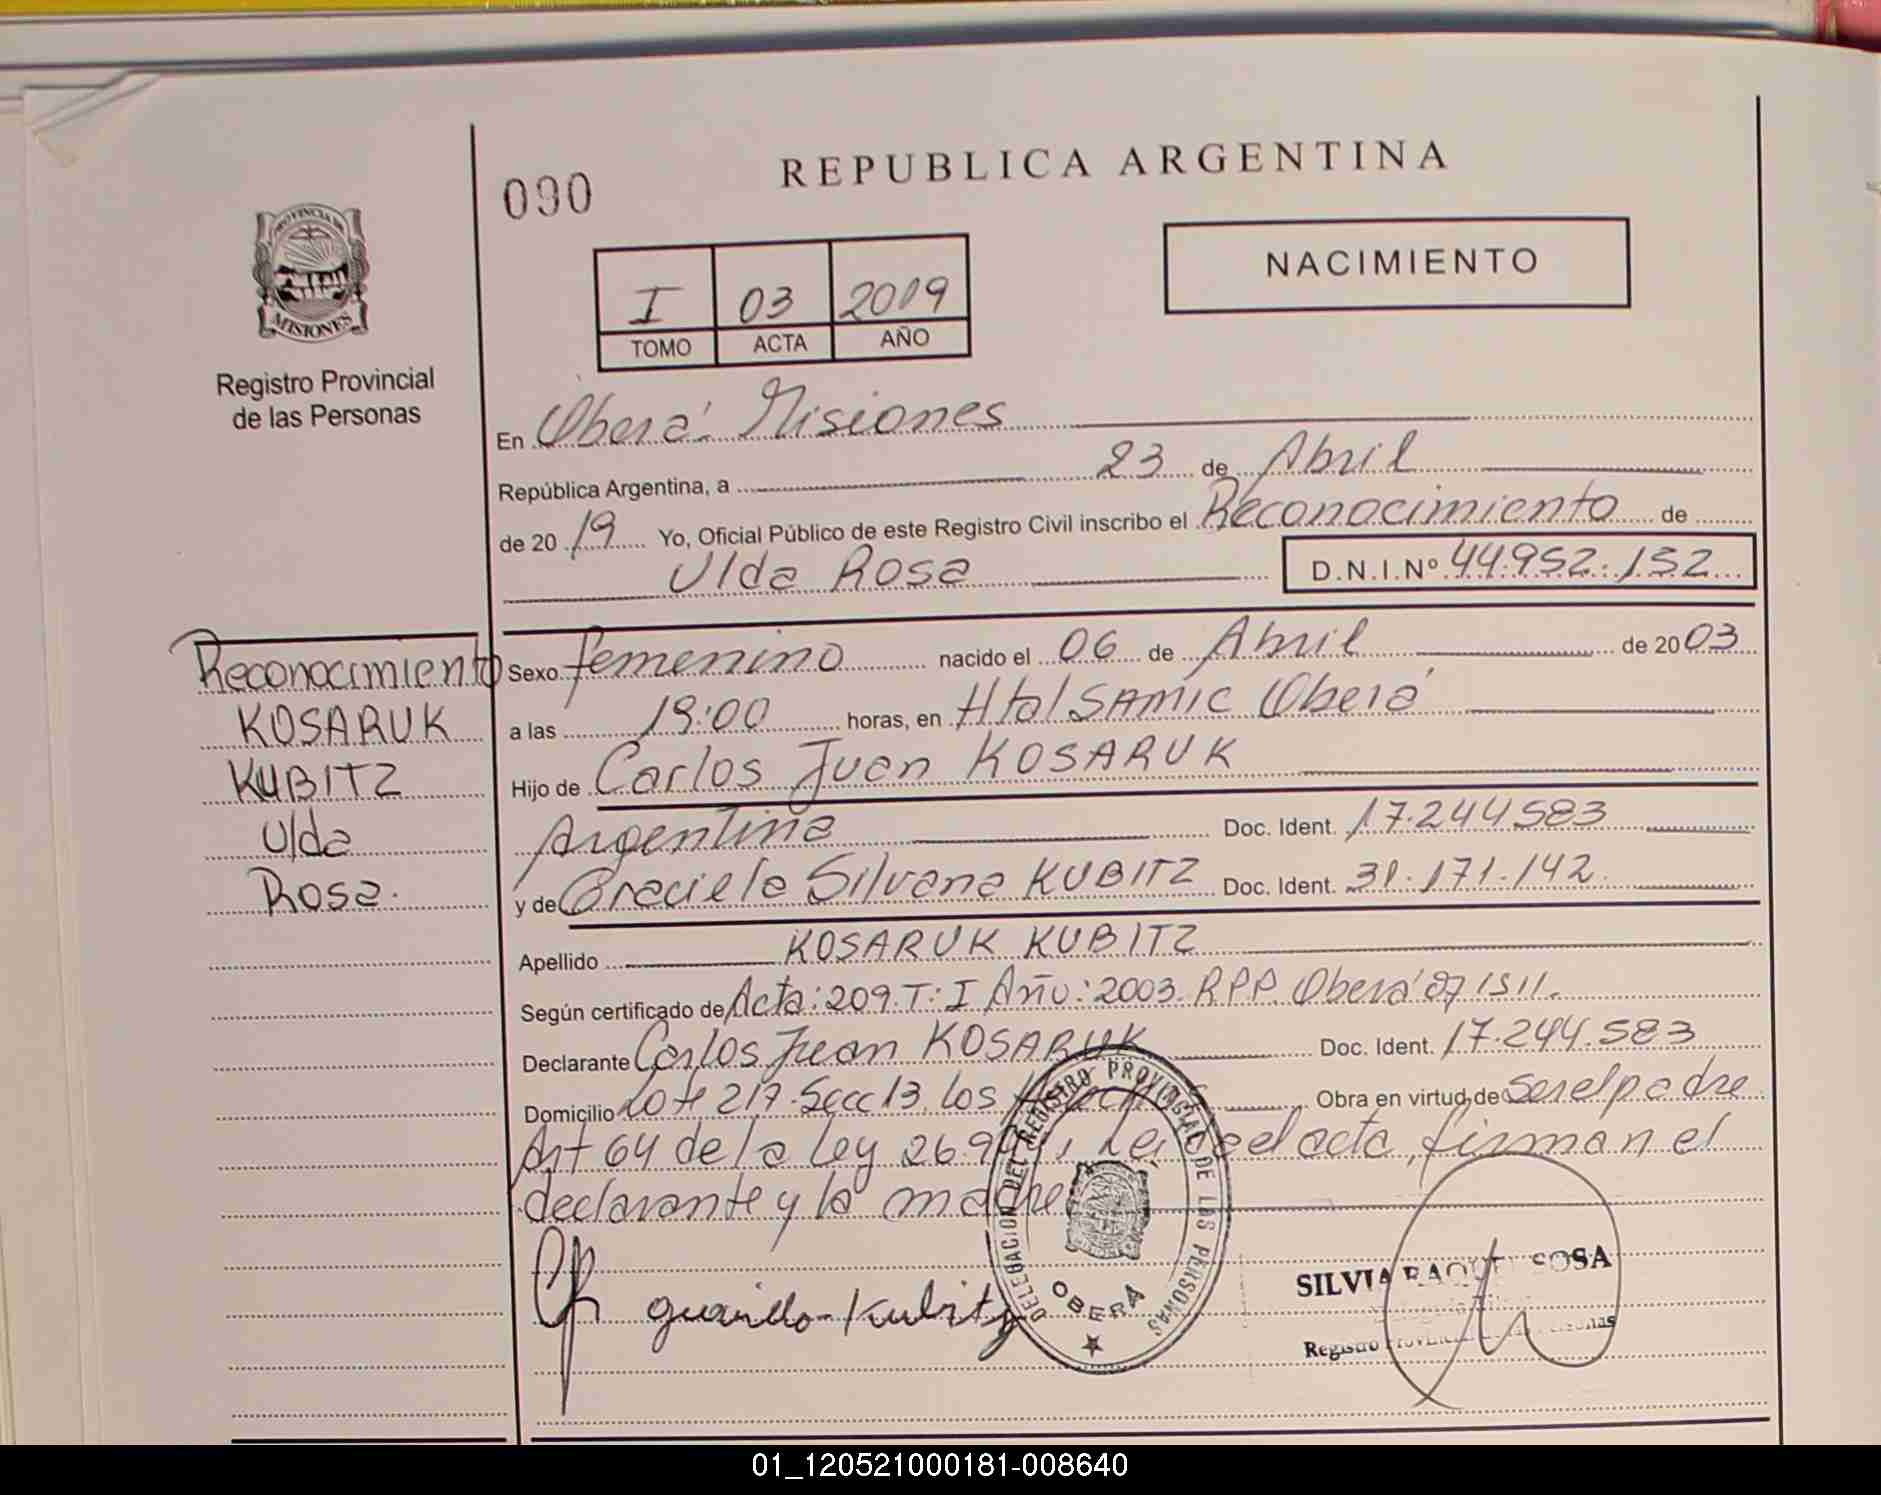 REPUBLICA ARGENTINA
090
NACIMIENTO
PROVINCIA DE
MISIONES
I 03 2019
TOMO ACTA AÑO
Registro Provincial
de las Personas
En Oberá. Misiones
República Argentina, a 23 de Abril
de 2019 Yo, Oficial Público de este Registro Civil inscribo el Reconocimiento de
Ulda Rosa D.N.I.Nº 44.952.132
Reconocimiento
KOSARUK
KUBITZ
Ulda
Rosa.
Sexo femenino nacido el 06 de Abril de 2003
a las 19:00 horas, en Htal SAMIC Oberá
Hijo de Carlos Juan KOSARUK
Argentina Doc. Ident. 17.244583
y de Graciela Silvana KUBITZ Doc. Ident. 31.171.142
Apellido KOSARUK KUBITZ
Según certificado de Acta: 209. T: I Año: 2003. RPP Oberá
Declarante Carlos Juan KOSARUK Doc. Ident. 17.244.583
Domicilio Lote 217. Secc 13. Los Obra en virtud de ser el padre
Art 64 de la Ley 26.994, el acta, firman el
declarante y la madre
Kubitz
DELEGACION DEL REGISTRO PROVINCIAL DE LAS PERSONAS
OBERÁ
SILVIA RAQUEL SOSA
Registro Provincial de las Personas
01_120521000181-008640